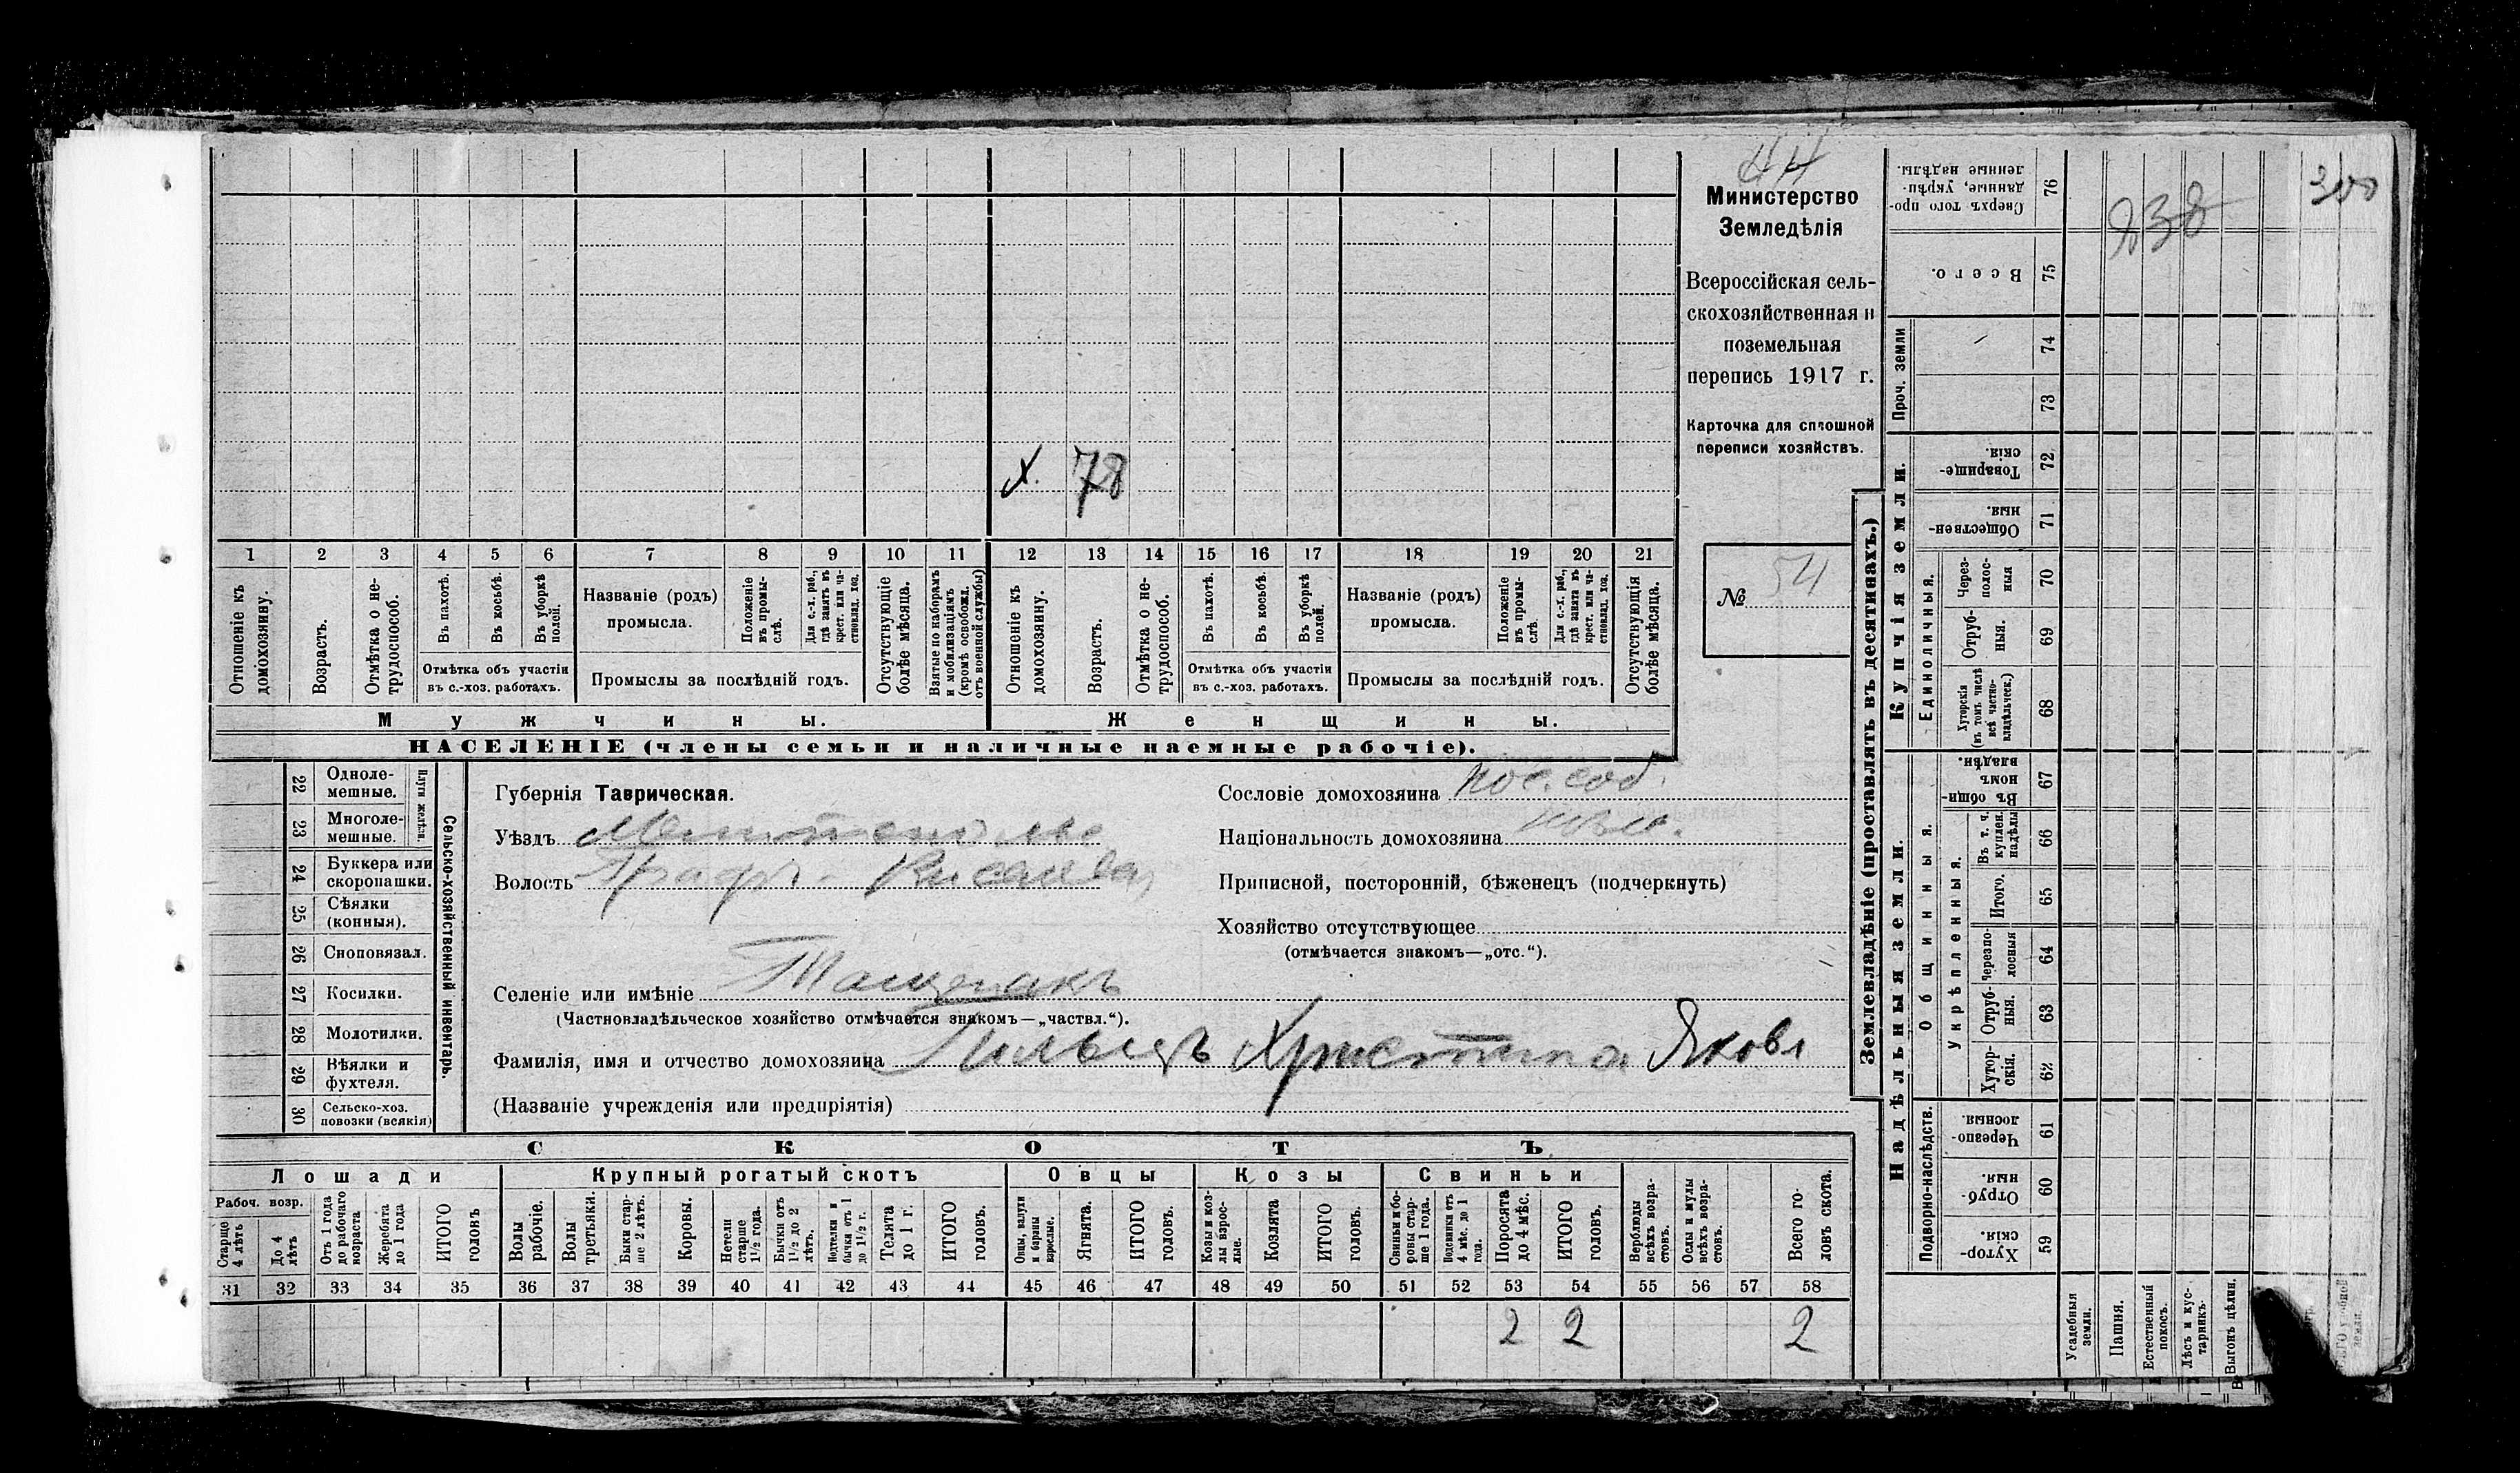 44
Министерство
Земледѣлія
Всероссійская сель-
скохозяйственная и
поземельная
перепись 1917 г.
Карточка для сплошной
переписи хозяйствъ.
№ 54
838
300
х. 78
1 2 3 4 5 6 7 8 9 10 11 12 13 14 15 16 17 18 19 20 21
Отношеніе къ домохозяину.
Возрастъ.
Отмѣтка о не-трудоспособ.
Въ пахотѣ.
Въ косьбѣ.
Въ уборкѣ полей.
Отмѣтка объ участіи
въ с.-хоз. работахъ.
Названіе (родъ)
промысла.
Положеніе въ промы-слѣ.
Для с.-х. раб., гдѣ занятъ въ крест. или ча-стновлад. хоз.
Промыслы за послѣдній годъ.
Отсутствующіе болѣе мѣсяца.
Взятые по наборамъ и мобилизаціямъ (кромѣ освобожд. отъ военной службы)
Отношеніе къ домохозяину.
Возрастъ.
Отмѣтка о не-трудоспособ.
Въ пахотѣ.
Въ косьбѣ.
Въ уборкѣ полей.
Отмѣтка объ участіи
въ с.-хоз. работахъ.
Названіе (родъ)
промысла.
Положеніе въ промы-слѣ.
Для с.-х. раб., гдѣ занята въ крест. или ча-стновлад. хоз.
Промыслы за послѣдній годъ.
Отсутствующія болѣе мѣсяца.
Мужчины.
Женщины.
НАСЕЛЕНІЕ (члены семьи и наличные наемные рабочіе).
22 Одноле-мешные.
23 Многоле-мешные.
Плуги желѣзн.
24 Буккера или скоропашки.
25 Сѣялки (конныя).
26 Сноповязал.
27 Косилки.
28 Молотилки.
29 Вѣялки и фухтеля.
30 Сельско-хоз. повозки (всякія)
Сельско-хозяйственный инвентарь.
Губернія Таврическая.
Уѣздъ Мелитопольс
Волость Граф.
Селеніе или имѣніе Тащенакъ
(Частновладѣльческое хозяйство отмѣчается знакомъ—„частвл.“).
Фамилія, имя и отчество домохозяина Гильцъ Христина Яковл
(Названіе учрежденія или предпріятія)
Сословіе домохозяина пос. соб.
Національность домохозяина
Приписной, посторонній, бѣженецъ (подчеркнуть)
Хозяйство отсутствующее
(отмѣчается знакомъ—„отс.“).
СКОТЪ
Лошади
Крупный рогатый скотъ
Овцы
Козы
Свиньи
Рабоч. возр.
Старше 4 лѣтъ
До 4 лѣтъ
Отъ 1 года до рабочаго возраста
Жеребята до 1 года
ИТОГО головъ
Волы рабочіе.
Волы третьяки.
Быки стар-ше 2 лѣтъ.
Коровы.
Нетели старше 1½ года.
Бычки отъ 1½ до 2 лѣтъ.
Нетелки и бычки отъ 1 до 1½ г.
Телята до 1 г.
ИТОГО головъ.
Овцы, валухи и бараны взрослые.
Ягнята.
ИТОГО головъ.
Козы и коз-лы взрос-лые.
Козлята
ИТОГО головъ.
Свиньи и бо-ровы стар-ше 1 года.
Подсвинки отъ 4 мѣс. до 1 года.
Поросята до 4 мѣс.
ИТОГО головъ.
Верблюды всѣхъ возра-стовъ.
Ослы и мулы всѣхъ возра-стовъ.
Всего го-ловъ скота.
31 32 33 34 35 36 37 38 39 40 41 42 43 44 45 46 47 48 49 50 51 52 53 54 55 56 57 58
2 2 2
Землевладѣніе (проставлять въ десятинахъ.)
Купчія земли.
Надѣльныя земли.
Проч. земли
Единоличныя.
Общинныя.
Укрѣпленныя.
Подворно-наслѣдств.
76 Сверхъ того про-данные, укрѣп-ленные надѣлы.
75 Всего.
74
73
72 Товарище-скія.
71 Обществен-ныя.
70 Через-полос-ныя
69 Отруб-ныя.
68 Хуторскія (въ томъ числѣ всѣ частно-владѣльческ.)
67 Въ общин-номъ владѣн.
66 Въ т. ч. куплен. надѣлы
65 Итого.
64 Черезпо-лосныя
63 Отруб-ныя.
62 Хутор-скія.
61 Черезпо-лосныя
60 Отруб-ныя.
59 Хутор-скія.
Усадебныя земли.
Пашня.
Естественный покосъ.
Лѣсъ и кус-тарникъ.
Выгонъ цѣлин.